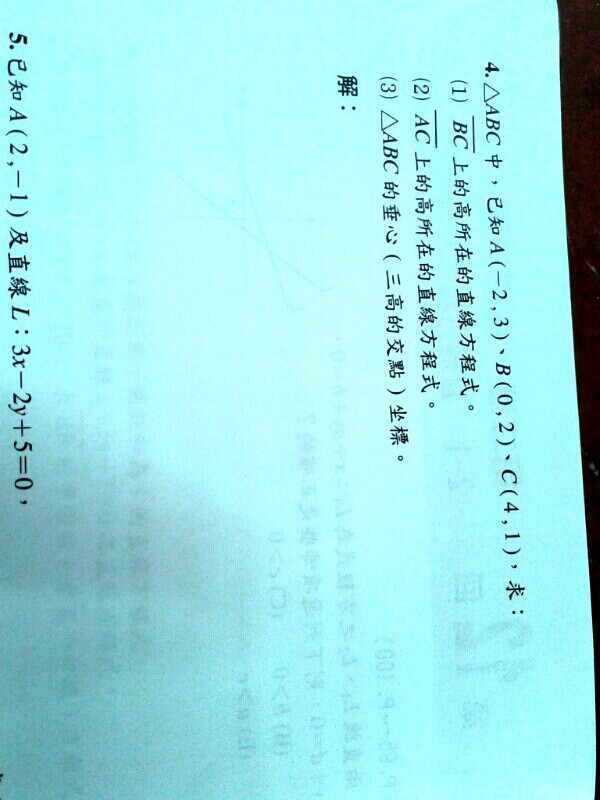 4. △ABC 中，已知 A(−2,3)、B(0,2)、C(4,1)，求：
(1) BC 上的高所在的直線方程式。
(2) AC 上的高所在的直線方程式。
(3) △ABC 的垂心(三高的交點)坐標。
解：
5. 已知 A(2,−1) 及直線 L：3x−2y+5=0，